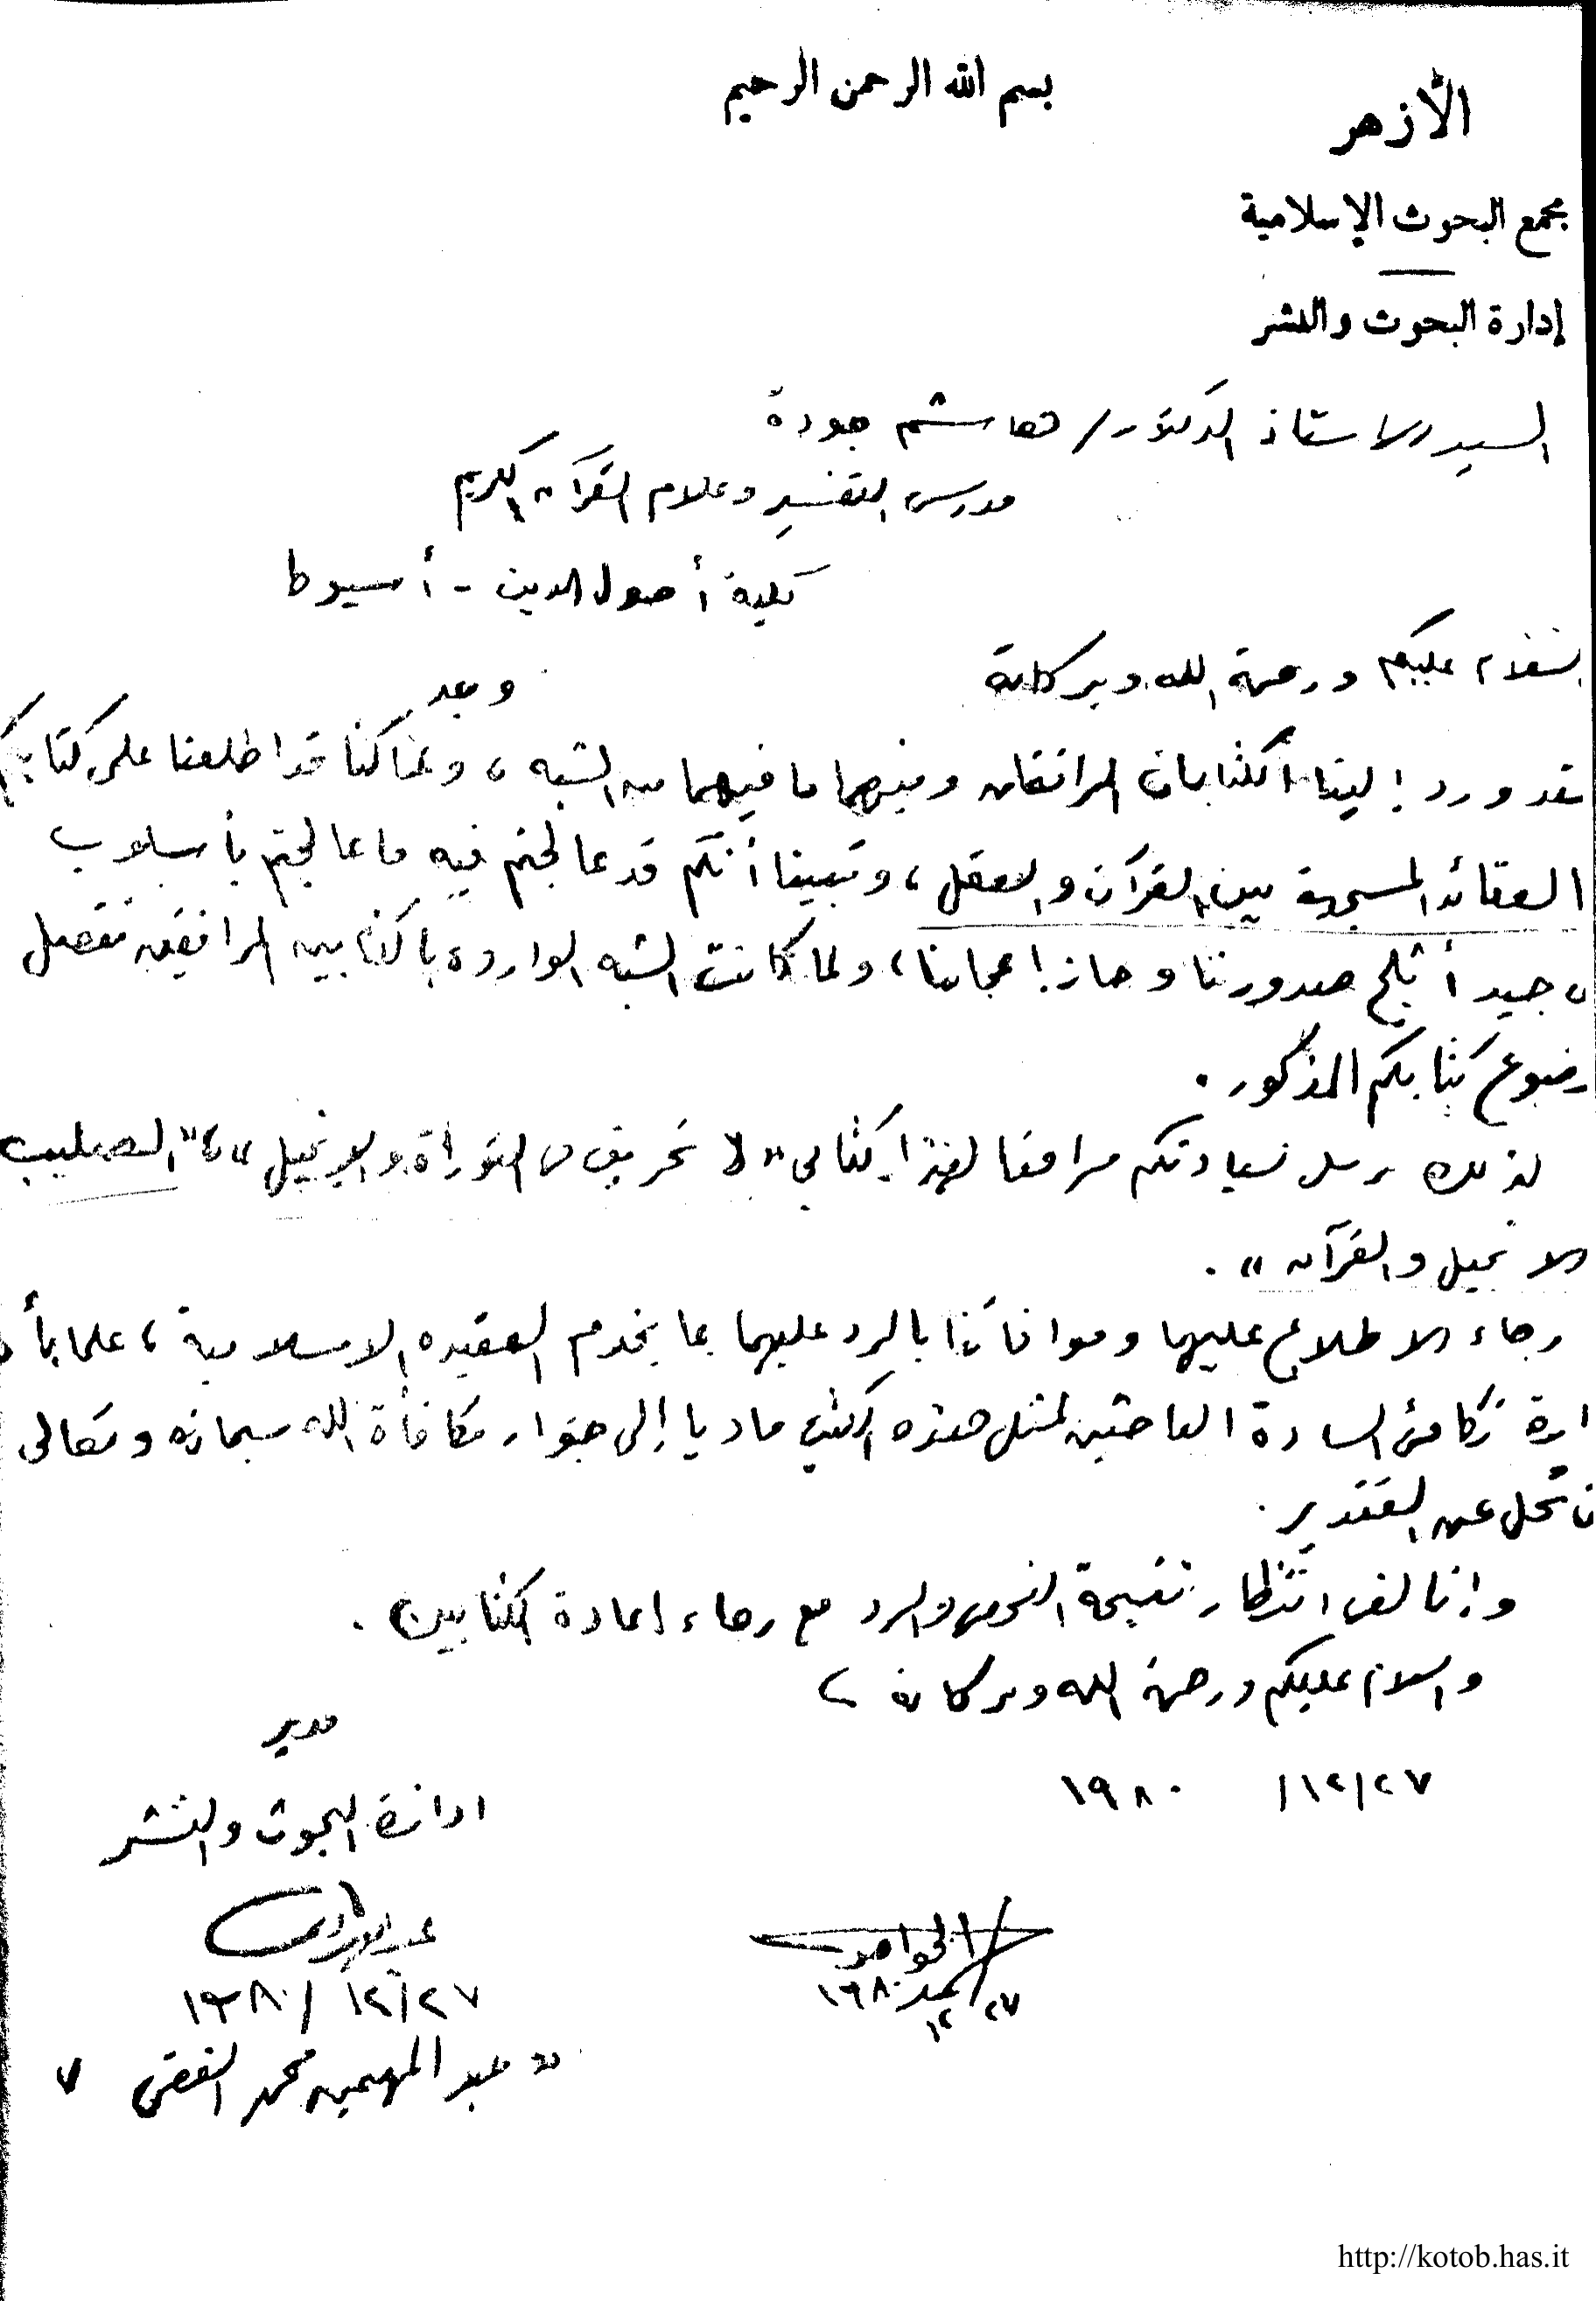 بسم الله الرحمن الرحيم
الأزهر
مجمع البحوث الإسلامية
إدارة البحوث والنشر
السيد الاستاذ الدكتور / هاشم جودة
مدرس التفسير وعلوم القرآن الكريم
كلية أصول الدين - أسيوط
السلام عليكم ورحمة الله وبركاته
وبعد
فقد ورد إلينا الكتابان المرافقان وفيهما ما فيهما من الشبه ، ولما كنا قد اطلعنا على كتابكم
العقائد المسيحية بين القرآن والعقل ، وتبينا أنكم قد عالجتم فيه ما عالجتم بأسلوب
جيد أثلج صدورنا وحاز إعجابنا ، ولما كانت الشبه الواردة بالكتابين المرافقين تتصل
كتابكم المذكور .
لذلك نرسل لسيادتكم مرافقا لهذا كتابي " لا تحريف في التوراة والإنجيل " ، " الصليب
الانجيل والقرآن " .
رجاء الاطلاع عليهما وموافاتنا بالرد عليهما بما يخدم العقيدة الاسلامية ، علما بأن
تكافئ السادة الباحثين لمثل هذه الكتب ماديا إلى جوار مكافأة الله سبحانه وتعالى
تجل عن التقدير .
وإنا لفى انتظار نتيجة الفحص والرد مع رجاء إعادة الكتابين .
والسلام عليكم ورحمة الله وبركاته
مدير
١٩٨٠ /١٢/٢٧
ادارة البحوث والنشر
١٩٨٠/١٢/٢٧
١٩٨٠ ١٢ ٢٧
" عبد المهيمن محمد الفقى
http://kotob.has.it